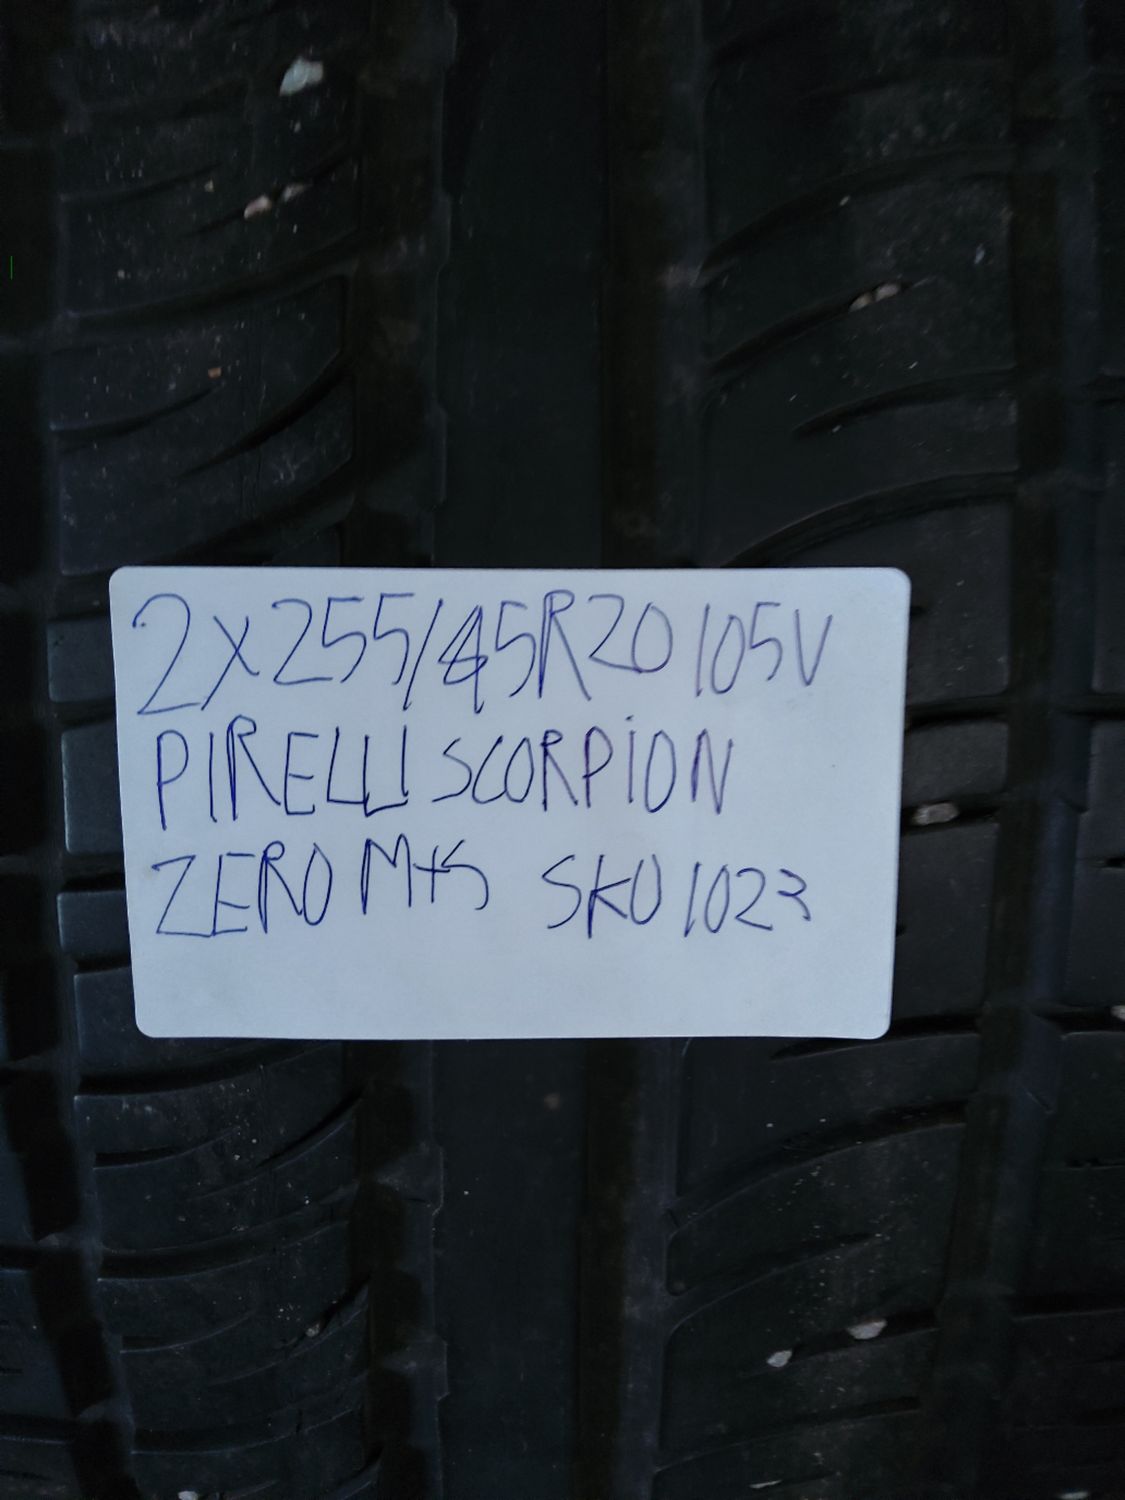 2X255/45R20 105V
PIRELLI SCORPION
ZERO M+S SKU 1023